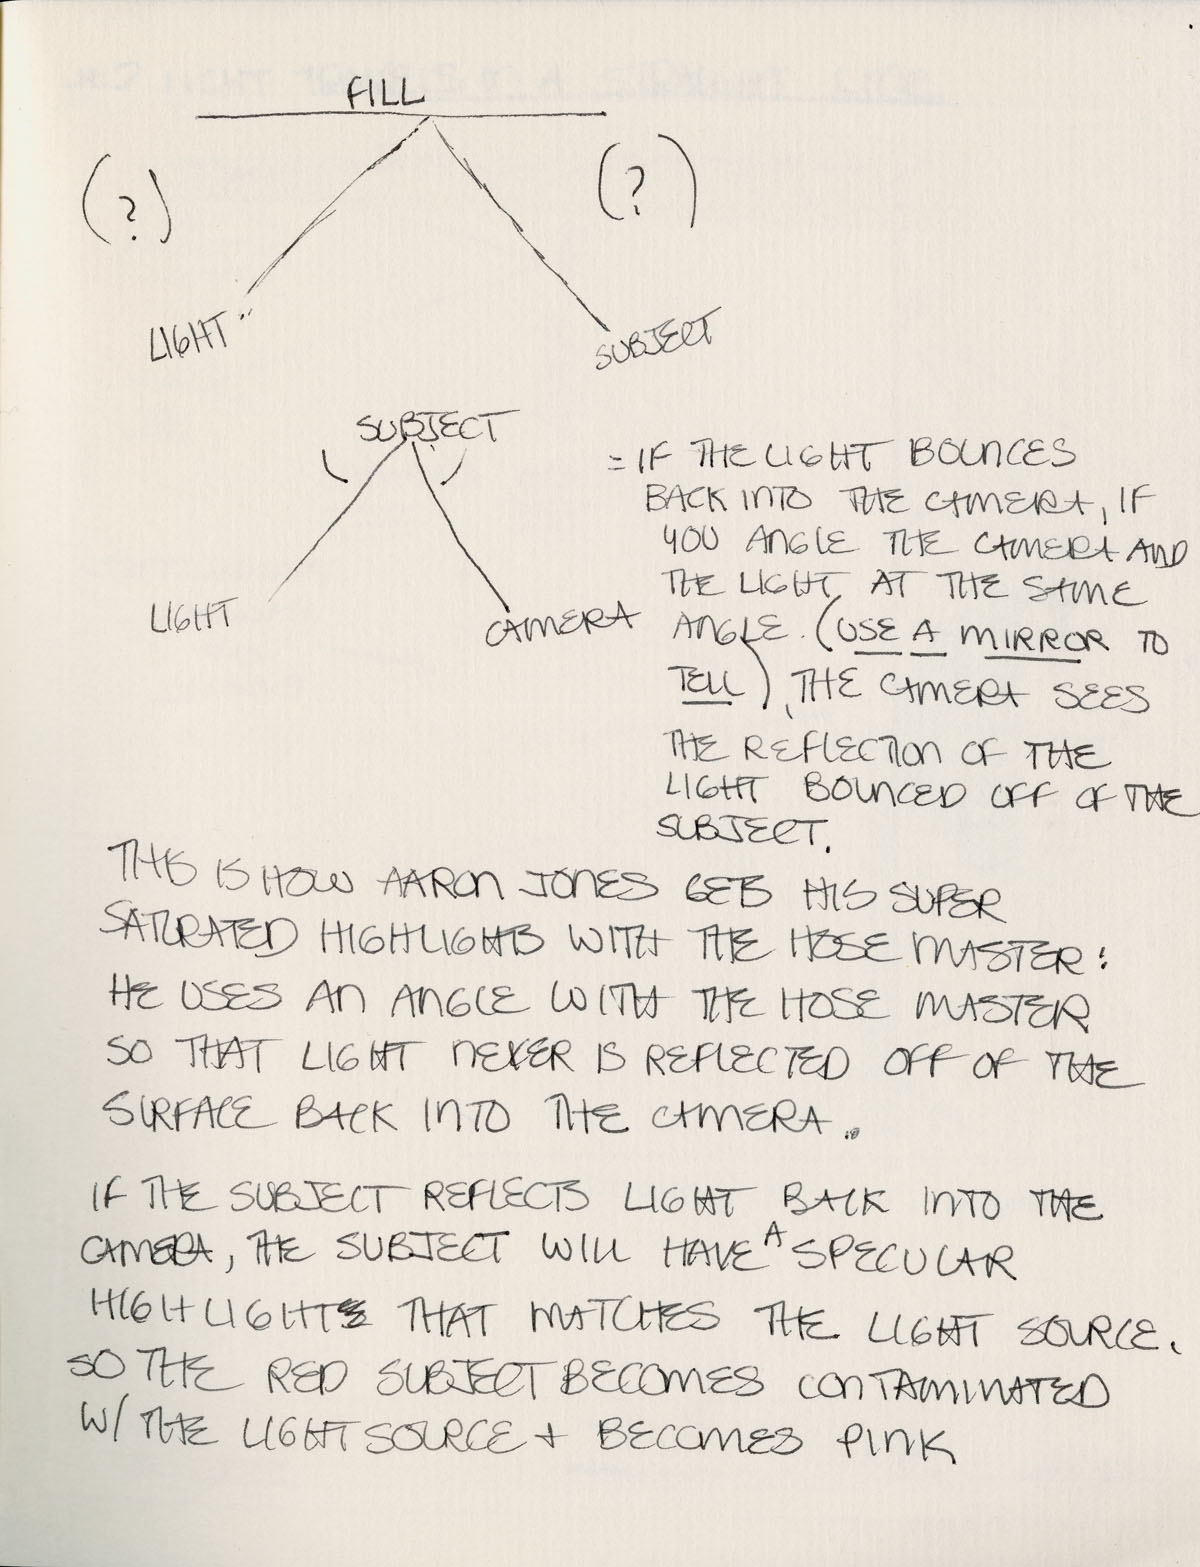 FILL
(?)
(?)
LIGHT
SUBJECT
SUBJECT
LIGHT
CAMERA
= IF THE LIGHT BOUNCES
BACK INTO THE CAMERA, IF
YOU ANGLE THE CAMERA AND
THE LIGHT AT THE SAME
ANGLE. (USE A MIRROR TO
TELL), THE CAMERA SEES
THE REFLECTION OF THE
LIGHT BOUNCED OFF OF THE
SUBJECT.
THIS IS HOW AARON JONES GETS HIS SUPER
SATURATED HIGHLIGHTS WITH THE HOSE MASTER:
HE USES AN ANGLE WITH THE HOSE MASTER
SO THAT LIGHT NEVER IS REFLECTED OFF OF THE
SURFACE BACK INTO THE CAMERA.
IF THE SUBJECT REFLECTS LIGHT BACK INTO THE
CAMERA, THE SUBJECT WILL HAVE A SPECULAR
HIGHLIGHT THAT MATCHES THE LIGHT SOURCE.
SO THE RED SUBJECT BECOMES CONTAMINATED
W/ THE LIGHT SOURCE + BECOMES PINK